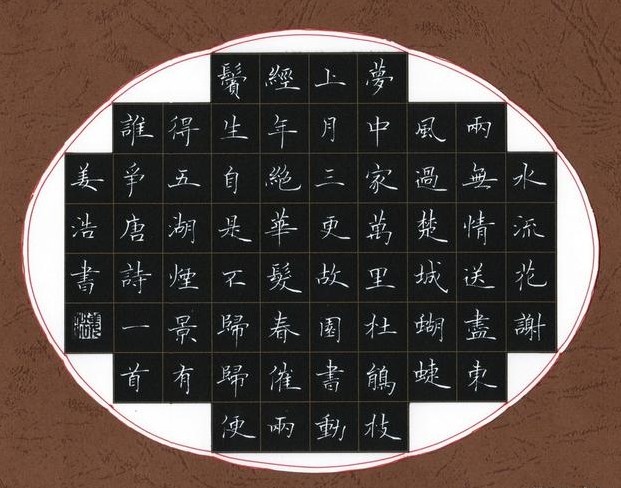 水流花謝
兩無情送盡東
風過楚城蝴蜨
夢中家萬里杜鵑枝
上月三更故園書動
經年絕華髮春催兩
鬢生自是不歸歸便
得五湖煙景有
誰爭唐詩一首
姜浩書